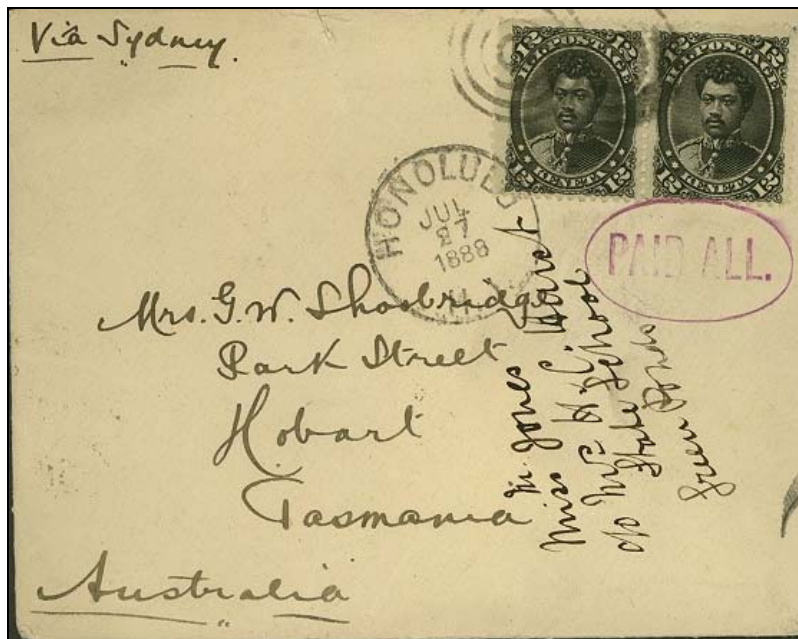 Via Sydney.
12 12
H.I. POSTAGE
KENETA
12 12
12 12
H.I. POSTAGE
KENETA
12 12
HONOLULU
JUL
27
1888
H.I.
PAID ALL.
Mrs. G. W. Shoobridge
Park Street
Hobart
Tasmania
Australia
M. Jones
Miss
c/o Mr H. C.
State School
Green Ponds